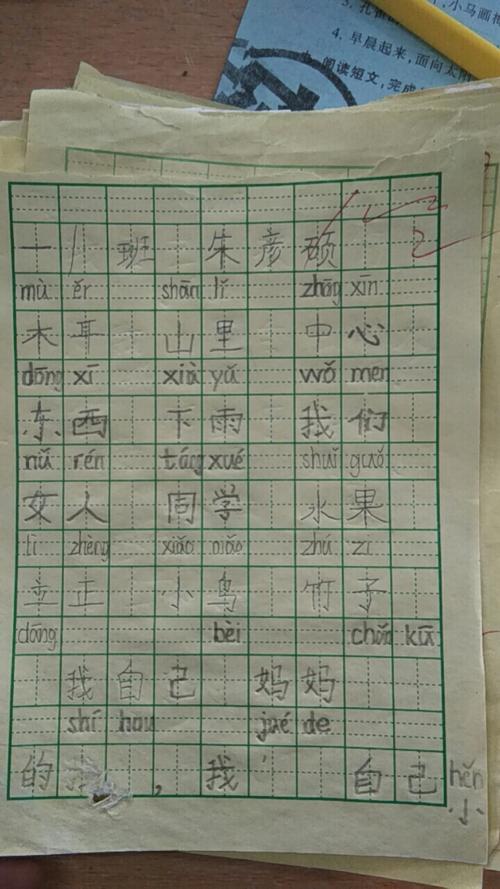 3. 孔
小马画
4. 早晨起来，面向太阳
阅读短文，完成
2
一 八 班 朱彦硕 2
mù ěr shān lǐ zhōng xīn
木耳 山里 中心
dōng xī xià yǔ wǒ men
东西 下雨 我们
nǚ rén táng xué shuǐ guǒ
女人 同学 水果
lì zhèng xiǎo niǎo zhú zi
立正 小鸟 竹子
dāng bèi chuān kū
我自己 妈妈
shí hou jué de
的 ，我 自己 hěn
小